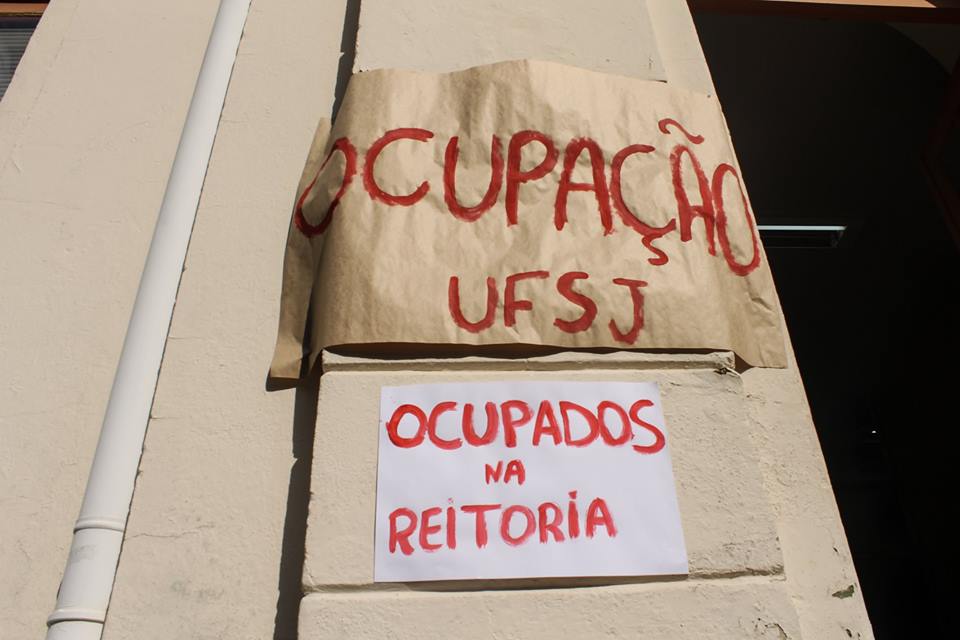 OCUPAÇÃO
UFSJ
OCUPADOS
NA
REITORIA